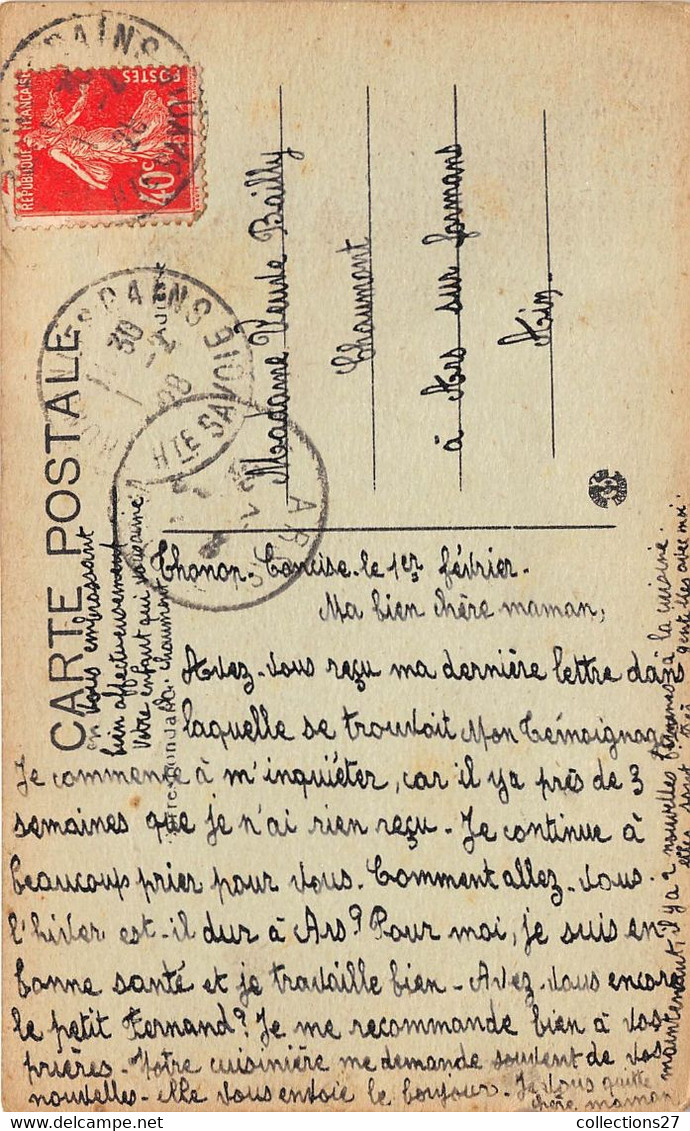 CARTE POSTALE
RÉPUBLIQUE FRANÇAISE
POSTES
40c
HTE SAVOIE
HTE SAVOIE
30
ARS
Madame Veuve Bailly
Chaumont
à Ars sur formans
Ain.
Thonon-Concise. le 1er février.
Ma bien chère maman,
Avez-vous reçu ma dernière lettre dans
laquelle se trouvait Mon Témoignage
Je commence à m'inquiéter, car il ya près de 3
semaines que je n'ai rien reçu. Je continue à
beaucoup prier pour vous. Comment allez-vous.
l'hiver est-il dur à Ars? Pour moi, je suis en
bonne santé et je travaille bien. Avez-vous encore
le petit Fernand? Je me recommande bien à vos
prières. Notre cuisinière me demande souvent de vos
nouvelles. elle vous envoie le bonjour. Je vous quitte
chère maman
maintenant, il y a 2 nouvelles à la cuisine.
elles sont très gentilles avec moi.
en vous embrassant
bien affectueusement
Votre enfant qui vous aime
Chaumont
collections27